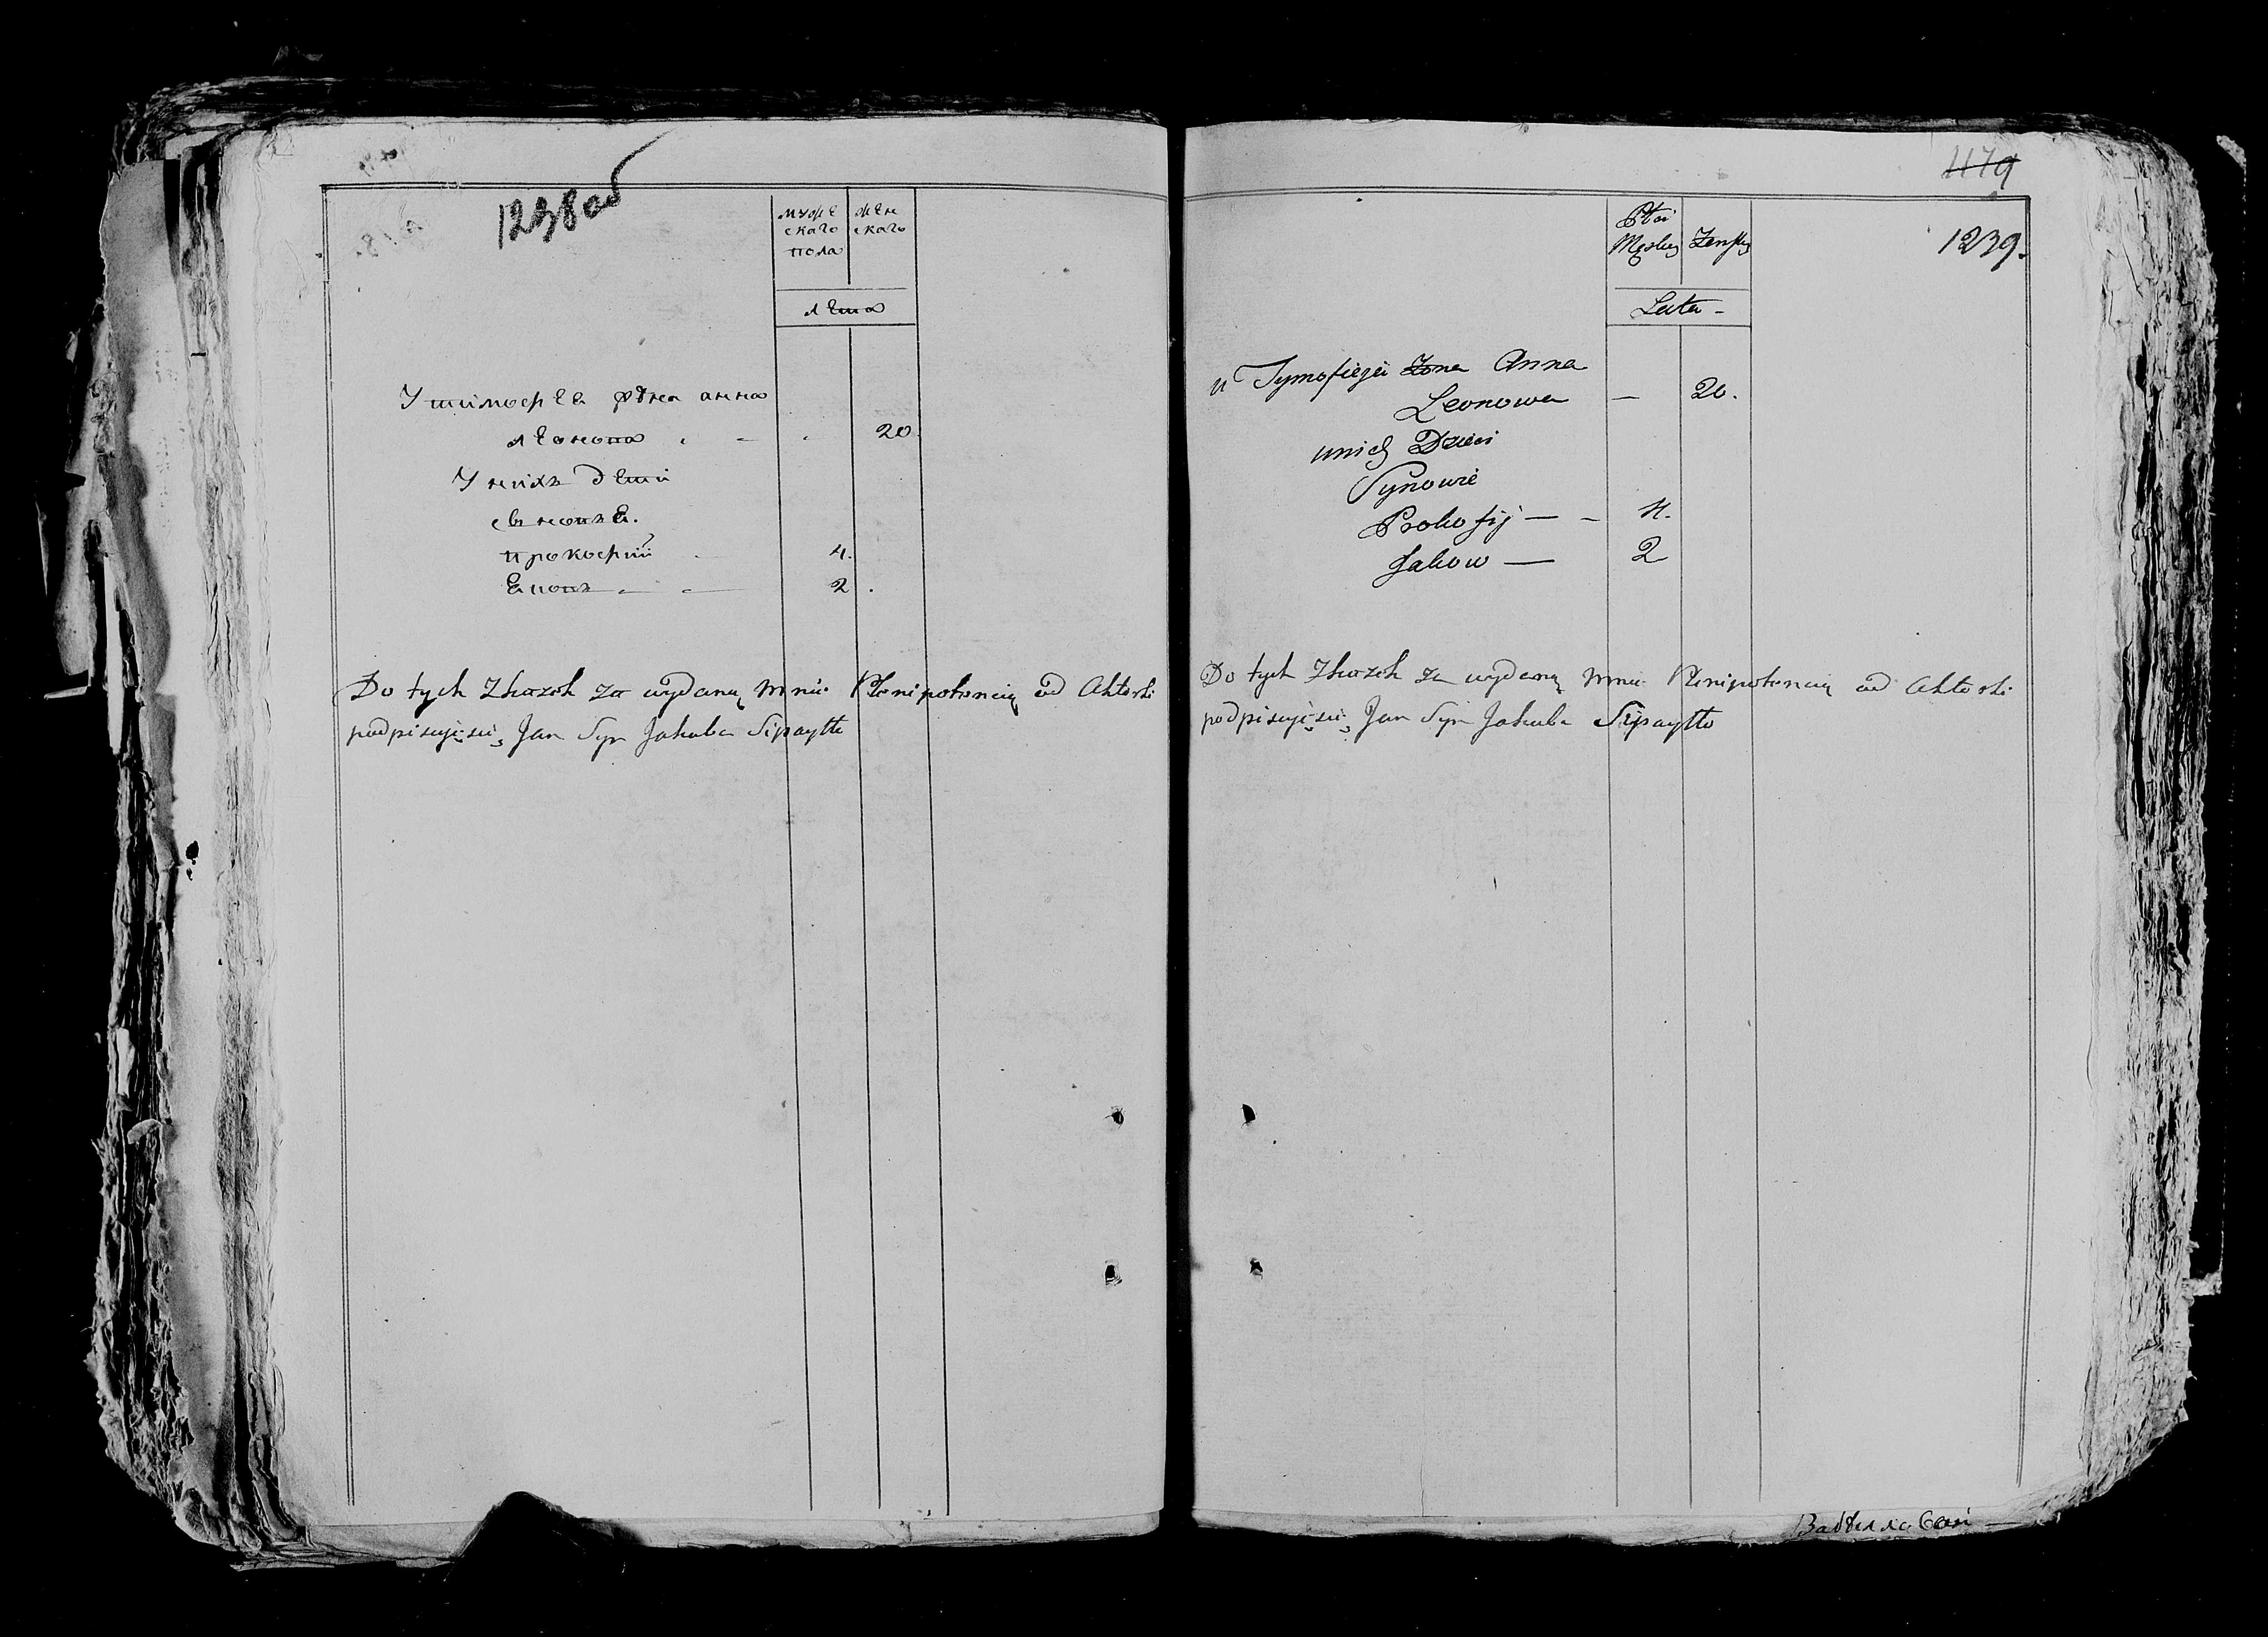 1238об
мужескаго пола
женскаго
лета
У тимофея жена анна
леонова 20.
У нихъ дети
сыновья.
прокофий 4.
Яковъ 2.
Do tych Skazek za wydaną mnie Plenipotencią od Aktorki
podpisuję się, Jan Syn Jakuba Sipaytto
1179
1239.
Płci
Męskiey Żenskiey
Lata
u Tymofieja Żona Anna
Leonowa — 20.
u nich Dzieci
Synowie
Prokofij — 4.
Jakow — 2
Do tych Skazek za wydaną mnie Plenipotencią od Aktorki
podpisuję się, Jan Syn Jakuba Sipaytto